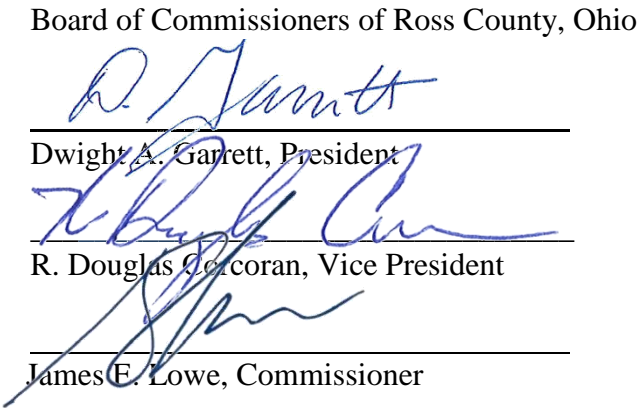 Board of Commissioners of Ross County, Ohio
D. Garrett
Dwight A. Garrett, President
R. Douglas Corcoran, Vice President
James E. Lowe, Commissioner